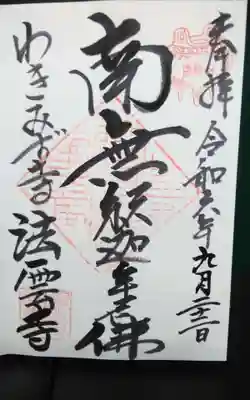 奉拝 令和六年九月二十二日
南無釈迦牟尼佛
わきみず寺 法雲寺